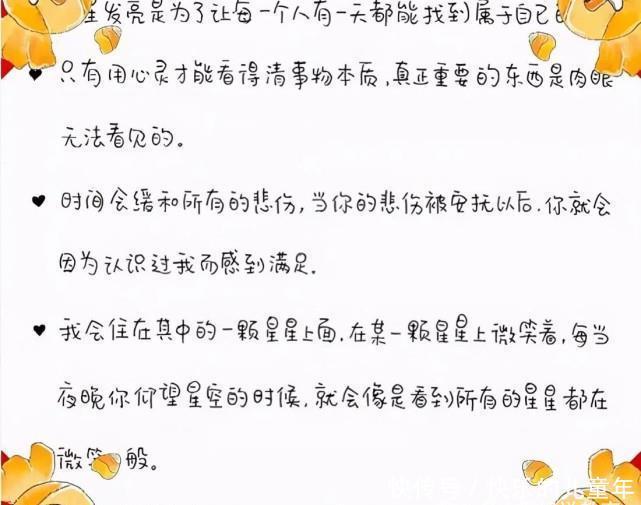 发亮是为了让每一个人有一天都能找到属于自己的
只有用心灵才能看得清事物本质,真正重要的东西是肉眼
无法看见的。
时间会缓和所有的悲伤,当你的悲伤被安抚以后.你就会
因为认识过我而感到满足.
我会住在其中的一颗星星上面.在某一颗星星上微笑着,每当
夜晚你仰望星空的时候.就会像是看到所有的星星都在
微笑 般。
快传号/快乐的儿童年